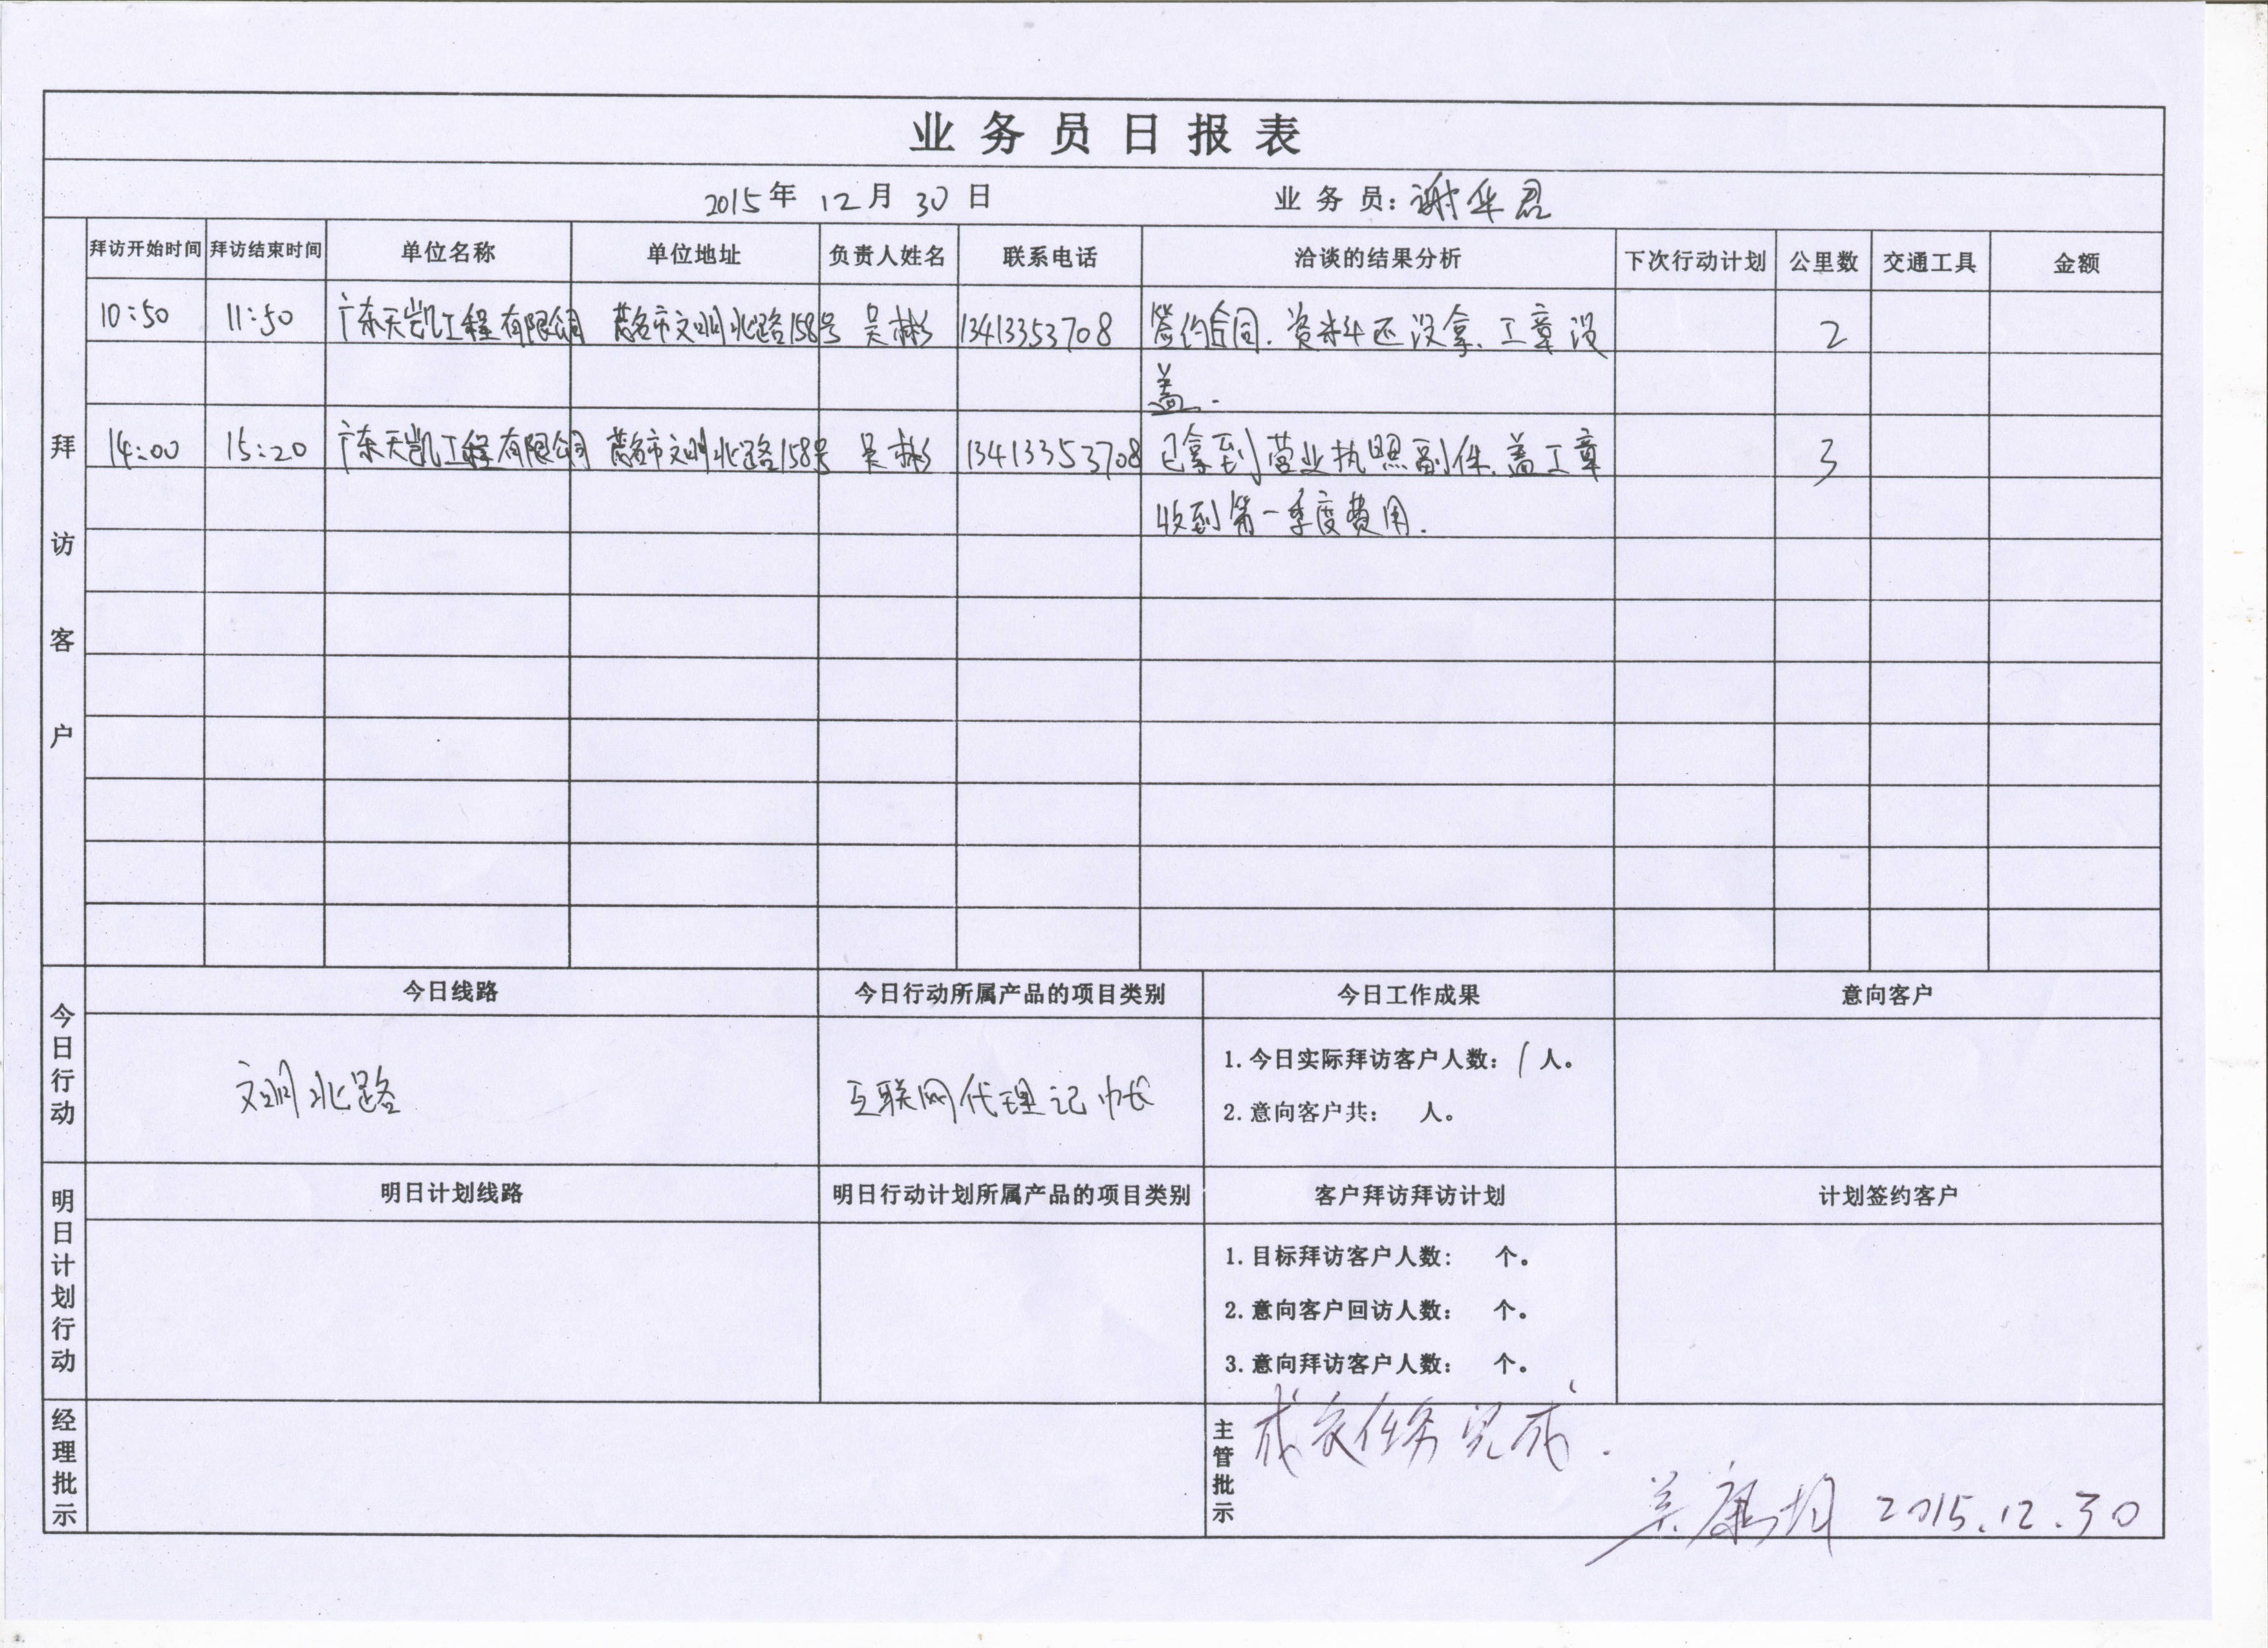 业务员日报表
2015年 12月 30日 业务员：谢华君
拜访开始时间 拜访结束时间 单位名称 单位地址 负责人姓名 联系电话 洽谈的结果分析 下次行动计划 公里数 交通工具 金额
拜访客户
10:50 11:50 广东天凯工程有限公司 茂名市文明北路158号 吴彬 13413353708 签约合同.资料还没拿、工章没 2
盖.
14:00 15:20 广东天凯工程有限公司 茂名市文明北路158号 吴彬 13413353708 已拿到营业执照副件、盖工章 3
收到第一季度费用.
今日行动
今日线路 今日行动所属产品的项目类别 今日工作成果 意向客户
文明北路 互联网代理记帐
1.今日实际拜访客户人数：1人。
2.意向客户共： 人。
明日计划行动
明日计划线路 明日行动计划所属产品的项目类别 客户拜访拜访计划 计划签约客户
1.目标拜访客户人数： 个。
2.意向客户回访人数： 个。
3.意向拜访客户人数： 个。
经理批示
主管批示
成交任务完成.
2015.12.30